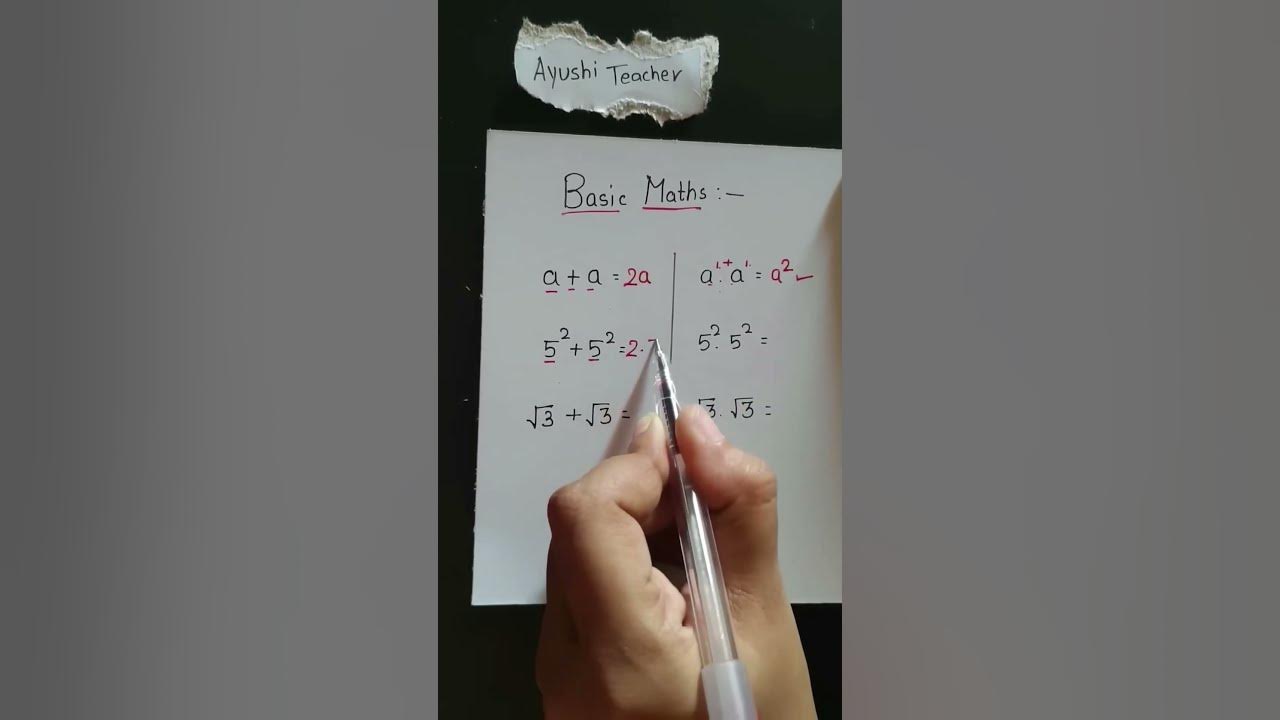 Ayushi Teacher
Basic Maths :-
a + a = 2a
a¹·⁺a¹ = a² ✓
5² + 5² = 2·
5²· 5² =
√3 + √3 =
√3· √3 =